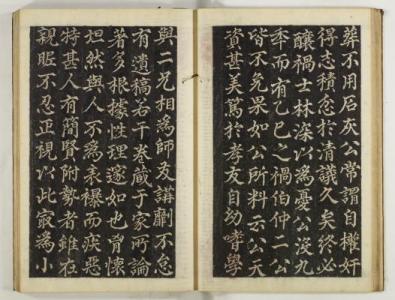 葬不用石灰公常謂自權奸
得志積忿於清議久矣終必
釀禍士林深以爲憂公沒九
季而有乙巳之禍伯仲二公
皆不免果如公所料云公天
資甚美篤於孝友自幼嗜學
與二兄相爲師友講劘不怠
有遺稿若干卷藏于家所論
著多根據性理邃如也胷懷
坦然與人不爲表襮而疾惡
特甚人有簡賢附勢者雖在
親眤不忍正視以此㝡爲小